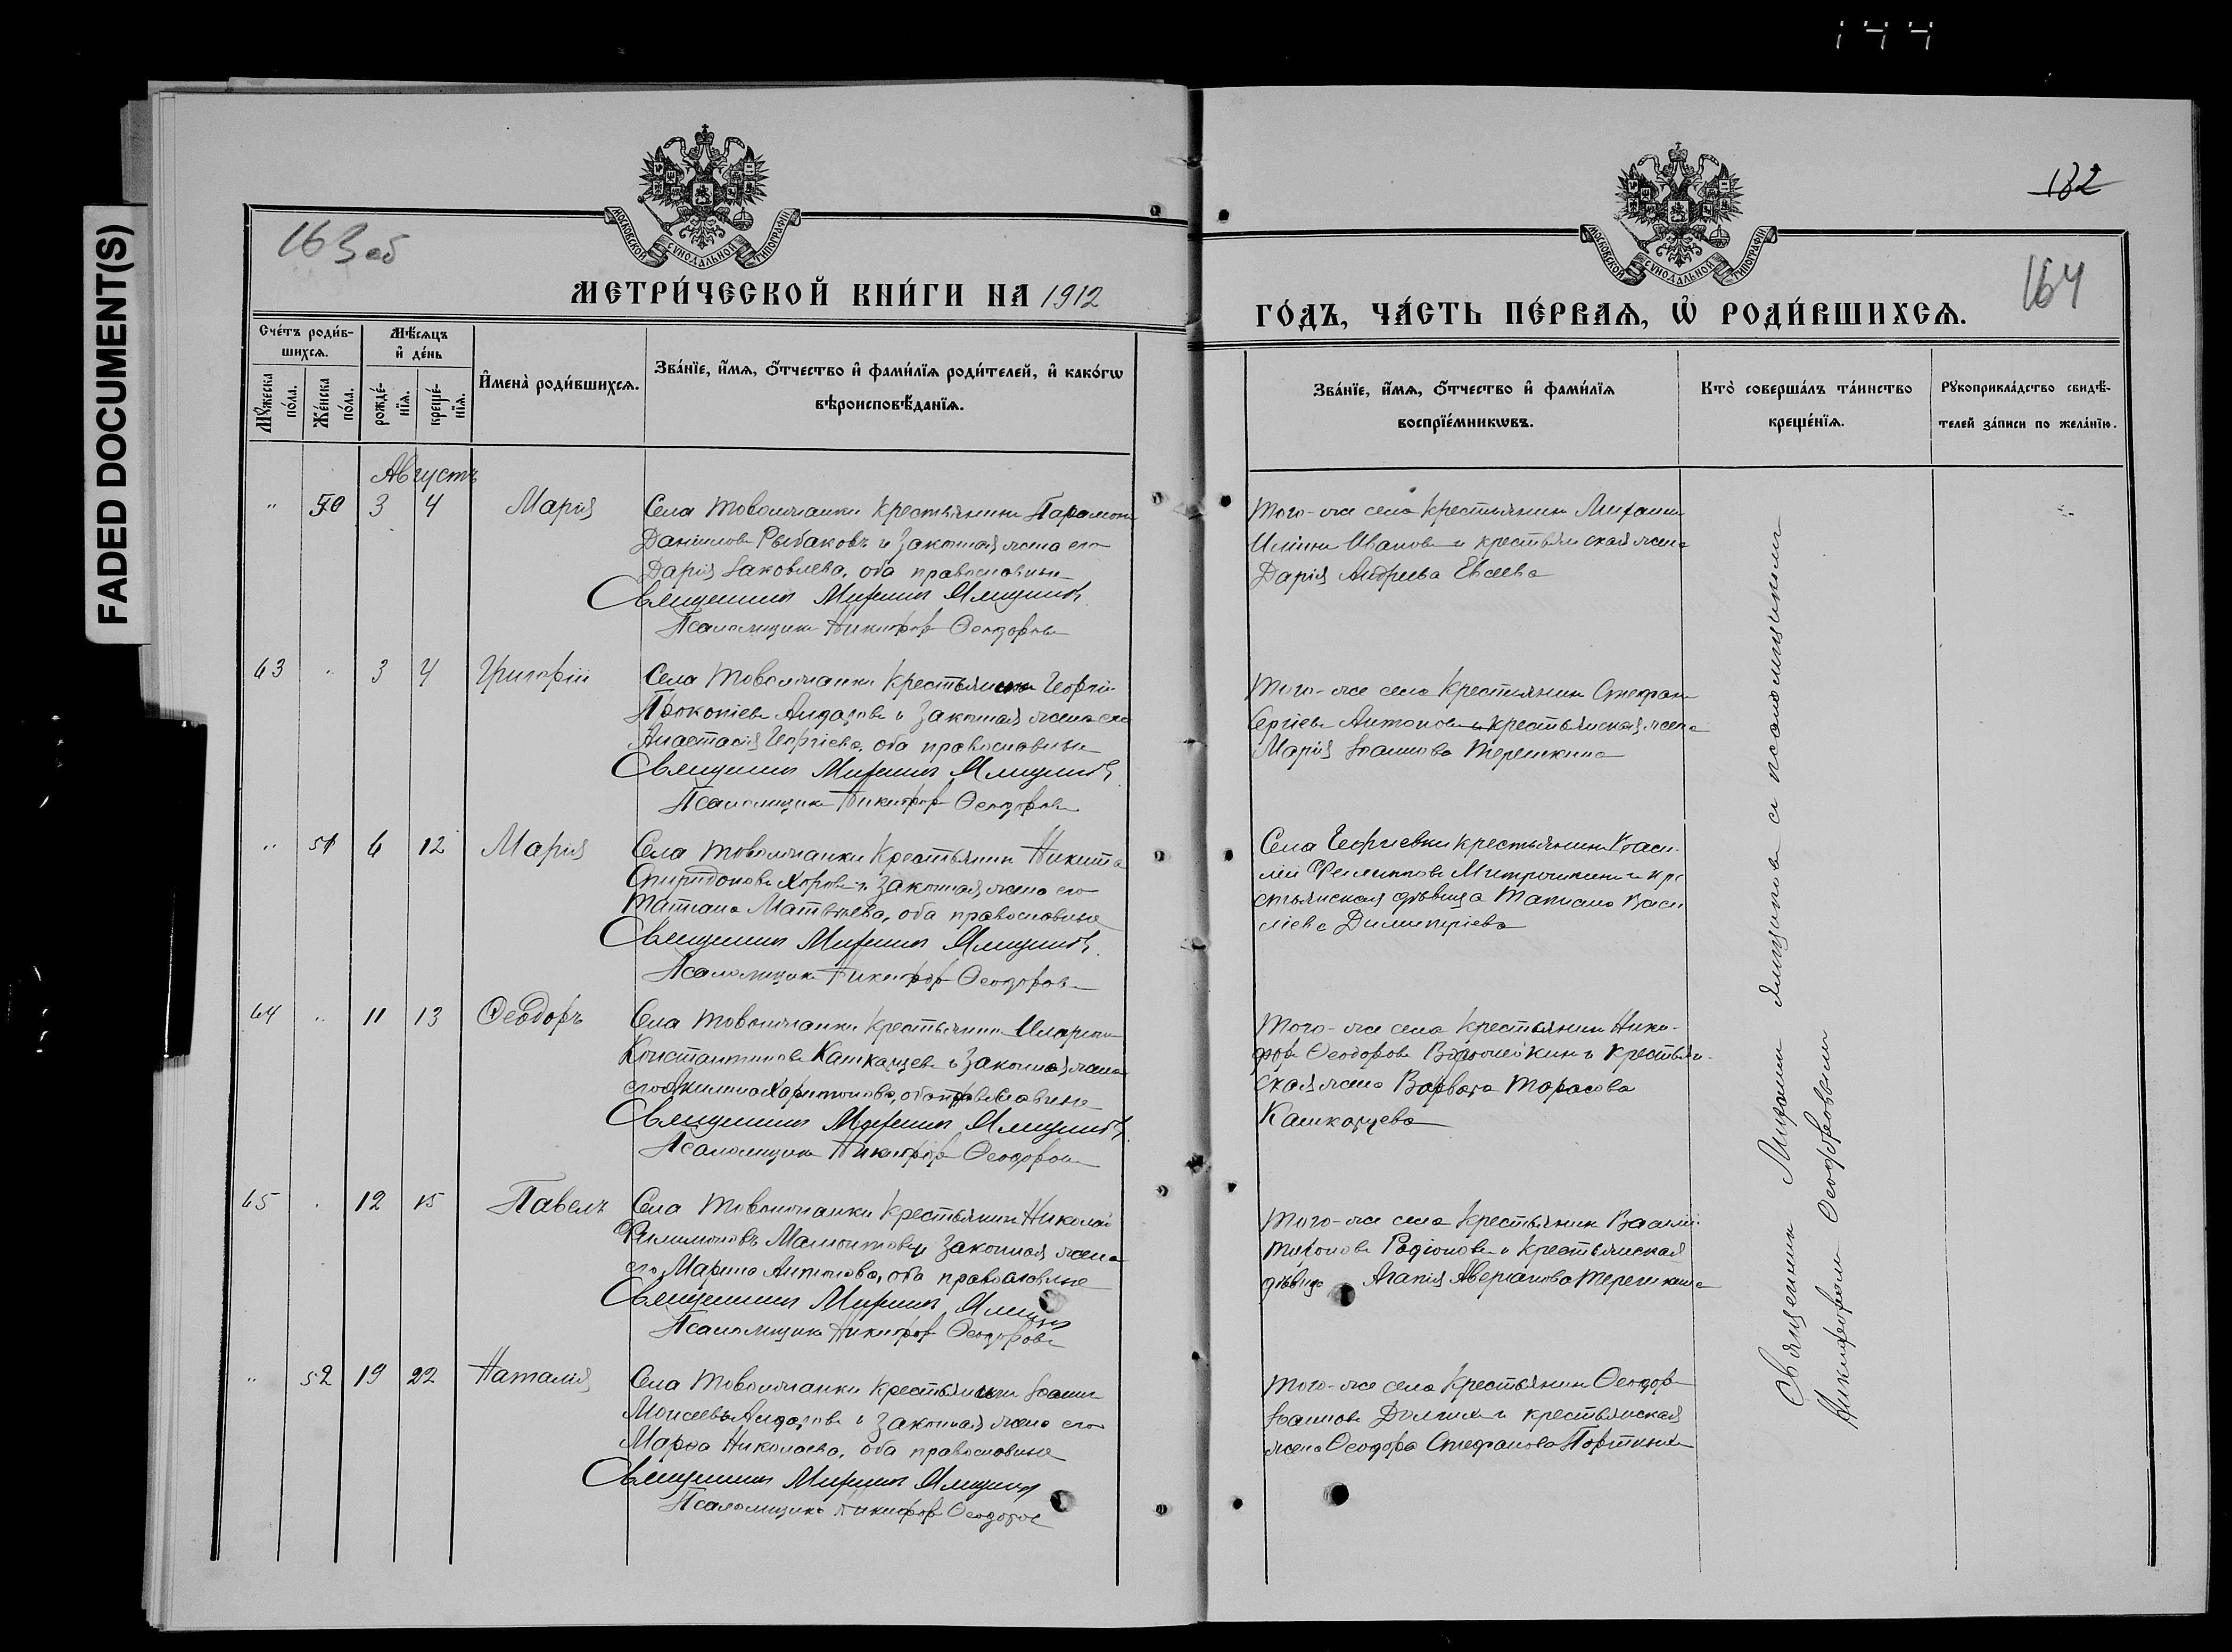 FADED DOCUMENT(S)
144
163 об
МОСКОВСКОЙ СѴНОДАЛЬНОЙ ТИПОГРАФІИ
МЕТРИ́ЧЕСКОЙ КНИ́ГИ НА 1912
Сче́тъ роди́в-
шихсѧ.
Мѣ́сѧцъ
и҆ де́нь
Мꙋ́жеска
по́ла.
Же́нска
по́ла.
рожде́-
нїѧ.
креще́-
нїѧ.
И҆мена̀ роди́вшихсѧ.
Зва́нїе, и҆́мѧ, ѻ҆́тчество и҆ фами́лїѧ роди́телей, и҆ како́гѡ
вѣроисповѣ́данїѧ.
Августъ
" 50 3 4 Марія
Села Товолжанки крестьянинъ Парамонъ
Даніиловъ Рыбаковъ и законная жена его
Дарія Іаковлева, оба православные
Священникъ Михаилъ
Псаломщикъ Никифоръ Ѳеодоровъ
63 " 3 4 Григорій
Села Товолжанки крестьянинъ Георгій
Прокопіевъ и законная жена его
Анастасія Георгіева, оба православные
Священникъ Михаилъ
Псаломщикъ Никифоръ Ѳеодоровъ
" 51 6 12 Марія
Села Товолжанки крестьянинъ Никита
Спиридоновъ и законная жена его
Татіана Матвѣева, оба православные
Священникъ Михаилъ
Псаломщикъ Никифоръ Ѳеодоровъ
64 " 11 13 Ѳеодоръ
Села Товолжанки крестьянинъ Иларіонъ
Константиновъ Кашкарцевъ и законная жена
его Харитонова, оба православные
Священникъ Михаилъ
Псаломщикъ Никифоръ Ѳеодоровъ
65 " 12 15 Павелъ
Села Товолжанки крестьянинъ Николай
Филимоновъ и законная жена
его Марина Антонова, оба православные
Священникъ Михаилъ
Псаломщикъ Никифоръ Ѳеодоровъ
" 52 19 22 Наталія
Села Товолжанки крестьянинъ Іоаннъ
Моисеевъ и законная жена его
Марѳа Николаева, оба православные
Священникъ Михаилъ
Псаломщикъ Никифоръ Ѳеодоровъ
182
164
МОСКОВСКОЙ СѴНОДАЛЬНОЙ ТИПОГРАФІИ
ГО́ДЪ, ЧА́СТЬ ПЕ́РВАѦ, Ѡ҆ РОДИ́ВШИХСѦ.
Зва́нїе, и҆́мѧ, ѻ҆́тчество и҆ фами́лїѧ
воспрїе́мникѡвъ.
Кто̀ соверша́лъ та́инство
креще́нїѧ.
Рꙋкоприкла́дство свидѣ́-
телей за́писи по жела́нїю.
Того-же села крестьянинъ Михаилъ
Ильинъ Ивановъ и крестьянская жена
Дарія Андреева Евсеева
Того-же села крестьянинъ Стефанъ
Сергіевъ Антоновъ и крестьянская жена
Марія Іоаннова Терешкина
Села Георгиевки крестьянинъ Васи-
лій Филипповъ Митрошкинъ и кре
стьянская дѣвица Татіана Васи
лiева Димитріева
Того-же села крестьянинъ Ники-
форъ Ѳеодоровъ и крестьян-
ская жена Варвара Тарасова
Кашкарцева
Того-же села крестьянинъ Василій
Тихоновъ Родіоновъ и крестьянская
дѣвица Агапія Аверіанова Терешкина
Того-же села крестьянинъ Ѳеодоръ
Іоанновъ Долгихъ и крестьянская
жена Ѳеодора Стефанова
Священникъ Михаилъ съ псаломщикомъ
Никифоромъ Ѳеодоровымъ